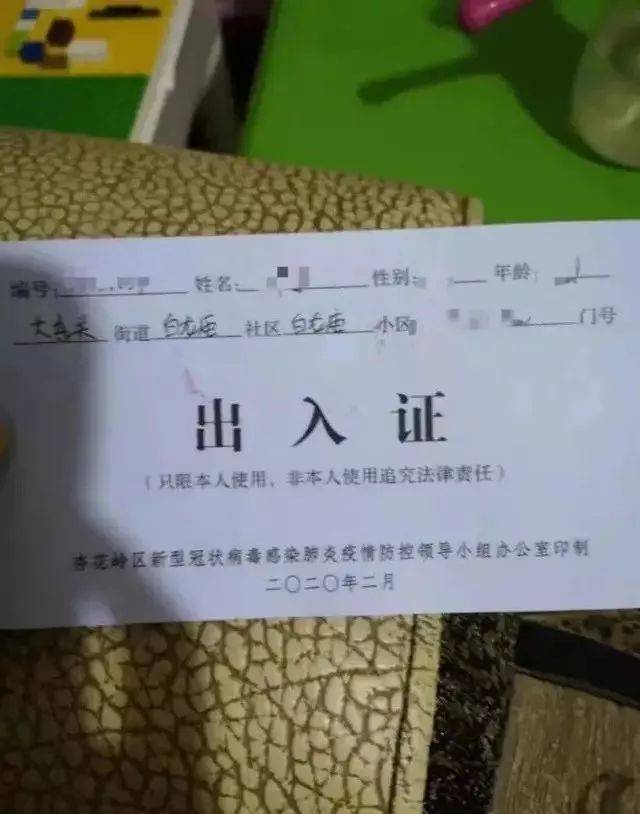 编号: 姓名: 性别: 年龄:
大东关 街道 白龙庙 社区 白龙庙 小区 门号
出入证
(只限本人使用,非本人使用追究法律责任)
杏花岭区新型冠状病毒感染肺炎疫情防控领导小组办公室印制
二〇二〇年二月